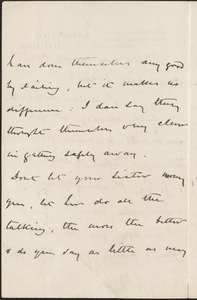 have done themselves any good
by failing, but it makes no
difference; I dare say they
thought themselves very clever
in getting safely away.
Don't let your Sister worry
you, let her do all the
talking, the more the better
& do you say as little as may